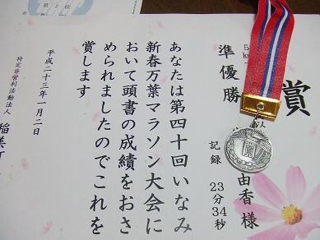 賞
準優勝
由香様
記録 23分34秒
あなたは第四十回いなみ
新春万葉マラソン大会に
おいて頭書の成績をおさ
められましたのでこれを
賞します
平成二十三年一月二日
特定非営利活動法人
稲美町